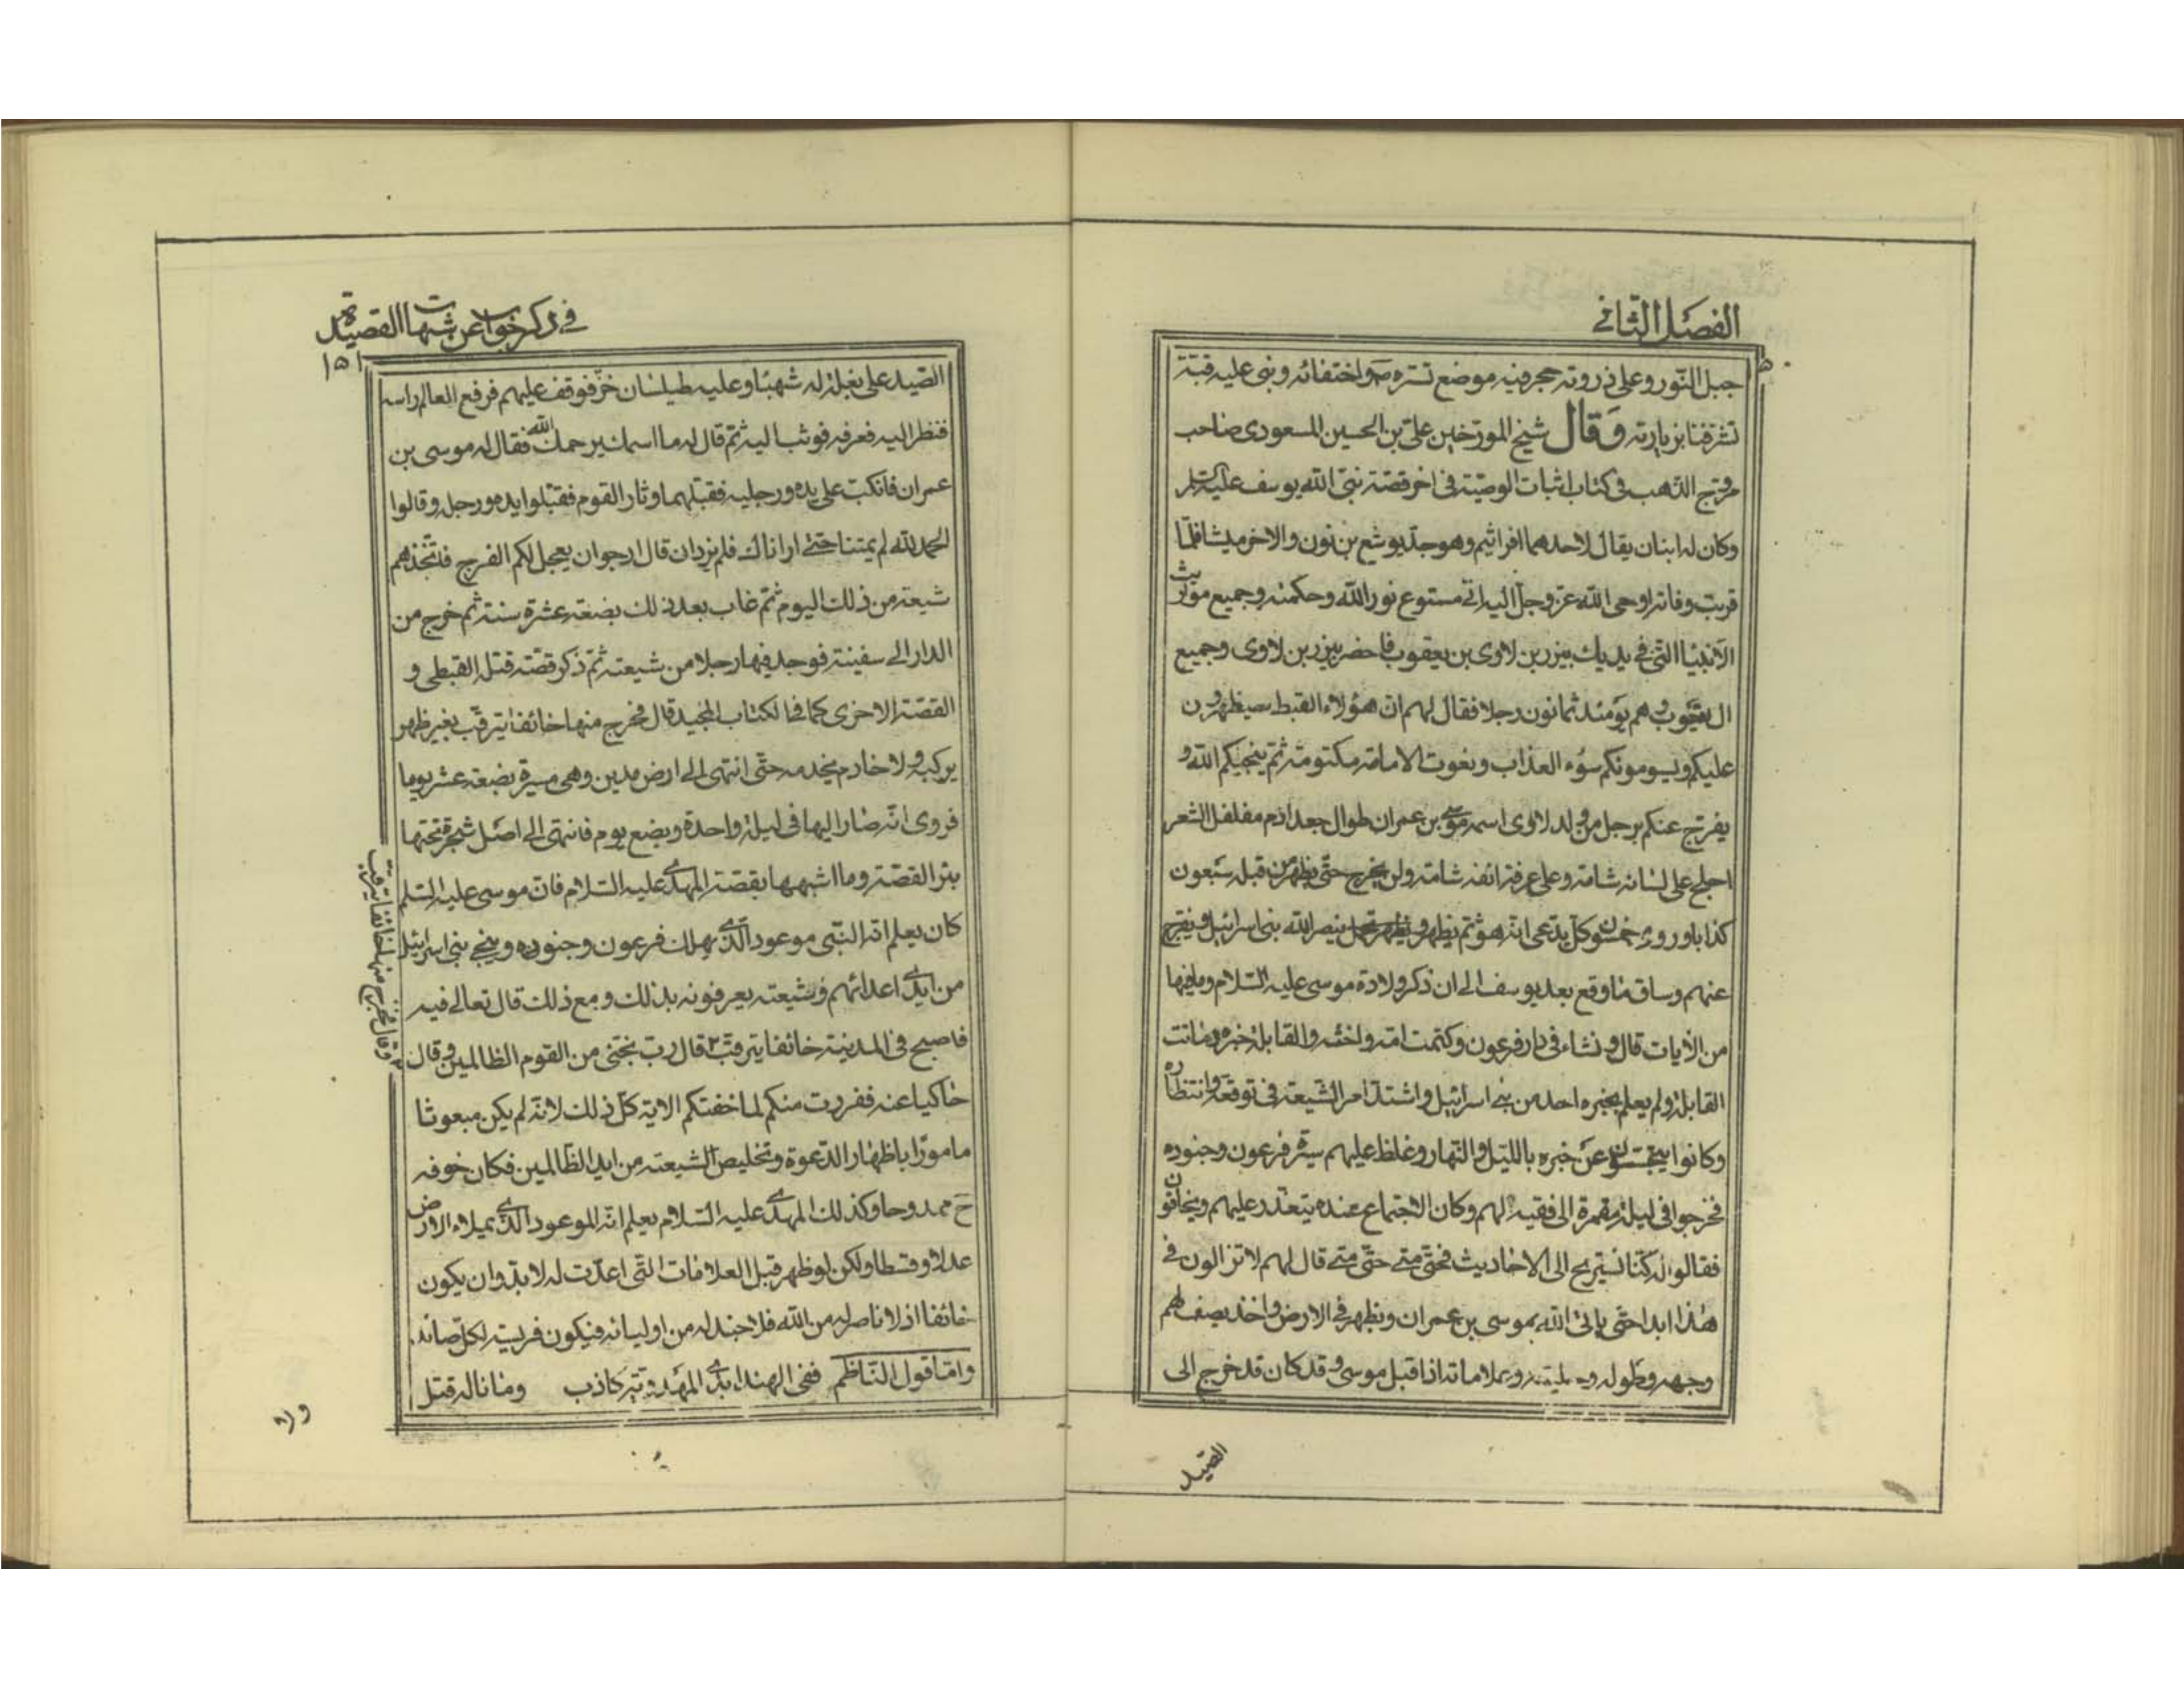 الفصل الثاني
جبل النور وعلى ذروته حجر فيه موضع تستره ص واختفائه وبنى عليه قبة
تشرفنا بزيارته وَقال شيخ المورخين علي بن الحسين المسعودي صاحب
مروج الذهب في كتاب اثبات الوصية في اخر قصة نبي الله يوسف عليه السلم
وكان له ابنان يقال لاحدهما افرائيم وهو جد يوشع بن نون والاخر ميشا فلما
قربت وفاته اوحى الله عز وجل اليه اني مستودع نور الله وحكمته وجميع مواريث
الانبيا التي في يديك ببزر بن لاوى بن يعقوب فاحضر ببزر بن لاوى وجميع
ال يعقوب وهم يومئذ ثمانون رجلا فقال لهم ان هؤلاء القبط سيظهرون
عليكم ويسومونكم سوء العذاب وبغوت الامامة مكتومة ثم ينجيكم الله و
يفرج عنكم برجل من ولد لاوى اسمه موسى بن عمران طوال جعد ادم مفلفل الشعر
احلج على لسانه شامة وعلى عرفة انفه شامة ولن يخرج حتى يظهر من قبله سبعون
كذابا وروى خمسون وكل يدعى انه هو ثم يظهر فينصر الله بني اسرائيل ويفرج
عنهم وساق ما وقع بعد يوسف الى ان ذكر ولادة موسى عليه السلام وما فيها
من الآيات قال ونشاء في دار فرعون وكتمت امه واخته والقابلة خبره وماتت
القابلة ولم يعلم بخبره احد من بني اسرائيل واشتد امر الشيعة في توقعه وانتظاره
وكانوا يتجسسون عن خبره بالليل والنهار وغلظ عليهم سيرة فرعون وجنوده
فخرجوا في ليلة مقمرة الى فقيه لهم وكان الاجتماع عنده يتعذر عليهم ويخافون
فقالوا له كنا نستريح الى الاحاديث فحتى متى حتى متى قال لهم لا تزالون في
هذا ابدا حتى ياتى الله بموسى بن عمران ويظهر في الارض واخذ يصف لهم
وجهه وطوله وحليته وعلاماته اذا قبل موسى وقد كان قد خرج الى
الصيد
في ذكر جواب عن شبهات القصيدة
١٥١
الصيد على بغلة له شهبا وعليه طيلسان خز فوقف عليهم فرفع العالم راسه
فنظر اليه فعرفه فوثب اليه ثم قال له ما اسمك يرحمك الله فقال له موسى بن
عمران فانكب على يده ورجليه فقبلهما وثار القوم فقبلوا يده ورجله وقالوا
الحمد لله لم يمتنا حتى ارانا ك فلم يزد ان قال ارجو ان يعجل لكم الفرج فاتخذهم
شيعة من ذلك اليوم ثم غاب بعد ذلك بضعة عشرة سنة ثم خرج من
الدار الى سفينة فوجد فيها رجلا من شيعته ثم ذكر قصة قتل القبطي و
القصة الاخرى كما في الكتاب المجيد قال فخرج منها خائفا يترقب بغير ظهر
يركبه ولا خادم يخدمه حتى انتهى الى ارض مدين وهى مسيرة بضعة عشر يوما
فروى انه صار اليها في ليلة واحدة وبضع يوم فانتهى الى اصل شجرة تحتها
بئر القصة وما اشبهها بقصة المهدى عليه السلام فان موسى عليه السلم
كان يعلم انه النبي موعود الذى يهلك فرعون وجنوده وينجي بني اسرائيل
من ايدى اعدائهم وشيعته يعرفونه بذلك ومع ذلك قال تعالى فيه
فاصبح في المدينة خائفا يترقب ٢ قال رب نجني من القوم الظالمين وقال
٢ وقال فخرج منها خائفا يترقب
حاكيا عنه ففررت منكم لما خفتكم الاية كل ذلك لانه لم يكن مبعوثا
مامورا باظهار الدعوة وتخليص الشيعة من ايد الظالمين فكان خوفه
ح ممدوحا وكذلك المهدى عليه السلام يعلم انه الموعود الذى يملاء الارض
عدلا وقسطا ولكن لو ظهر قبل العلامات التي اعدت له لا بد وان يكون
خائفا اذ لا ناصر له من الله فلا جند له من اوليائه فيكون فريسة لكل صائد
واما قول الناظم ففى الهند ابدى المهدوية كاذب وما ناله قتل